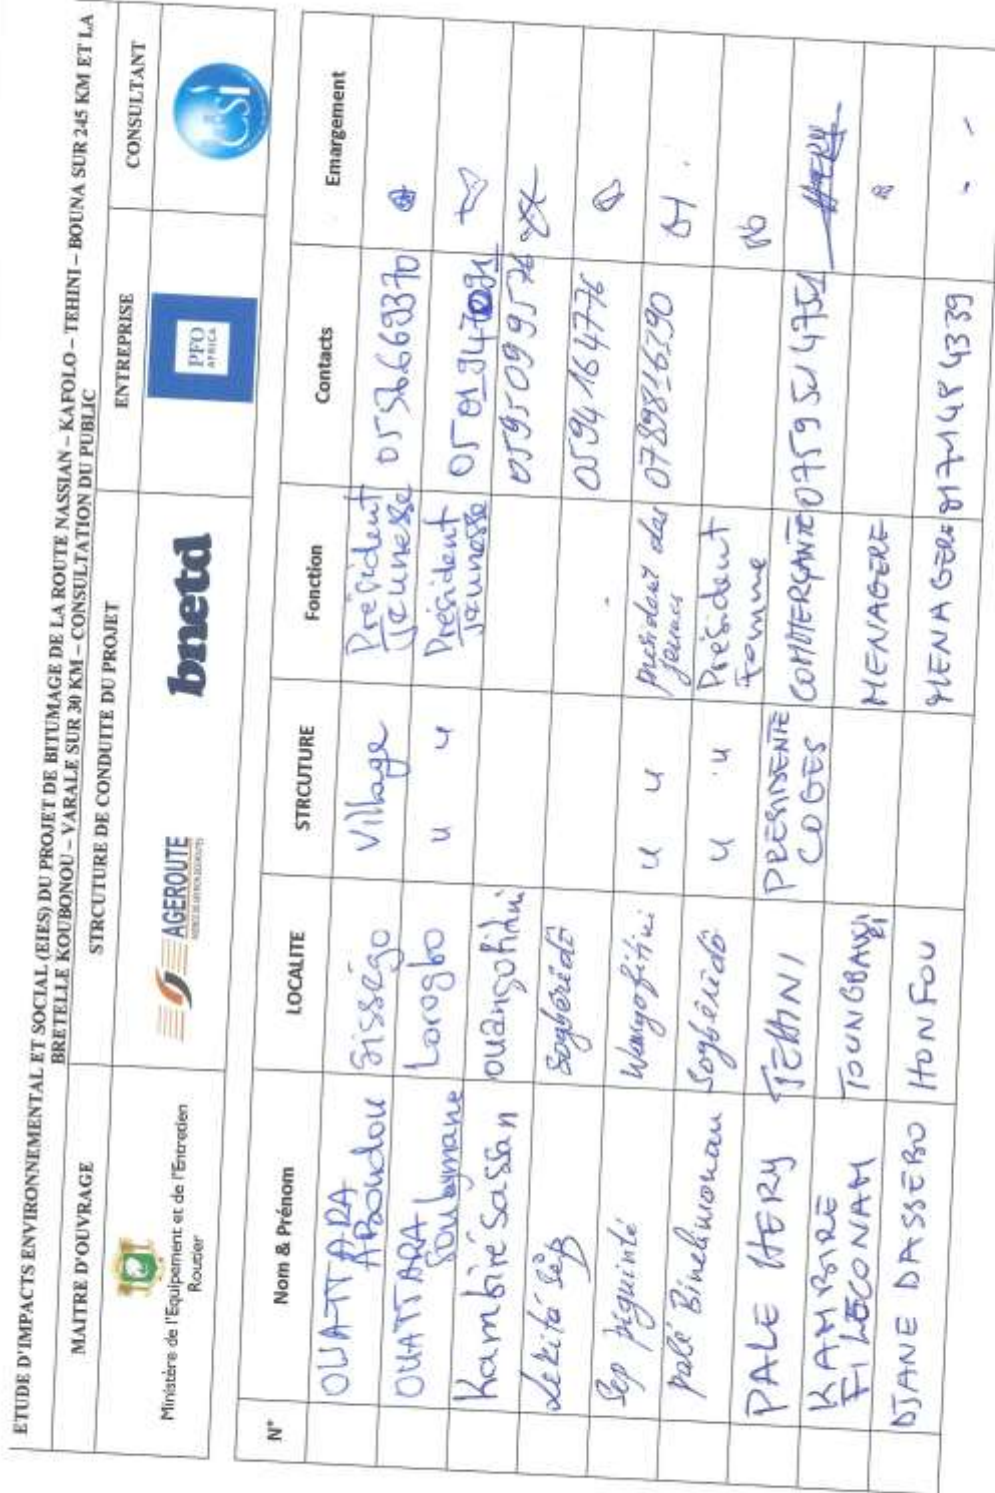 ETUDE D'IMPACTS ENVIRONNEMENTAL ET SOCIAL (EIES) DU PROJET DE BITUMAGE DE LA ROUTE NASSIAN – KAFOLO – TEHINI – BOUNA SUR 245 KM ET LA
BRETELLE KOUBONOU – VARALE SUR 30 KM – CONSULTATION DU PUBLIC
MAITRE D'OUVRAGE STRCUTURE DE CONDUITE DU PROJET ENTREPRISE CONSULTANT
Ministère de l'Equipement et de l'Entretien
Routier
AGEROUTE
bnetd
PFO
AFRICA
CSI
N° Nom & Prénom LOCALITE STRCUTURE Fonction Contacts Emargement
OUATTARA Aboudou Sisségo Village Président Jeunesse 0556669370
OUATTARA Souleymane Lorogbo u u Président Jeunesse
Kambiré Sassan ouangofitini 0595099576
Sogbériodô 0594164776
Sep piguinté Wangofitini u u president des jeunes 0789816790
palé Binelimonan Sogbériodô u u Président Femme
PALE HERY TEHINI PRESIDENTE COGES COMMERÇANTE HERY
KAMBIRE MENAGERE
DJANE DASSEBO HONFOU MENAGERE 0171484339